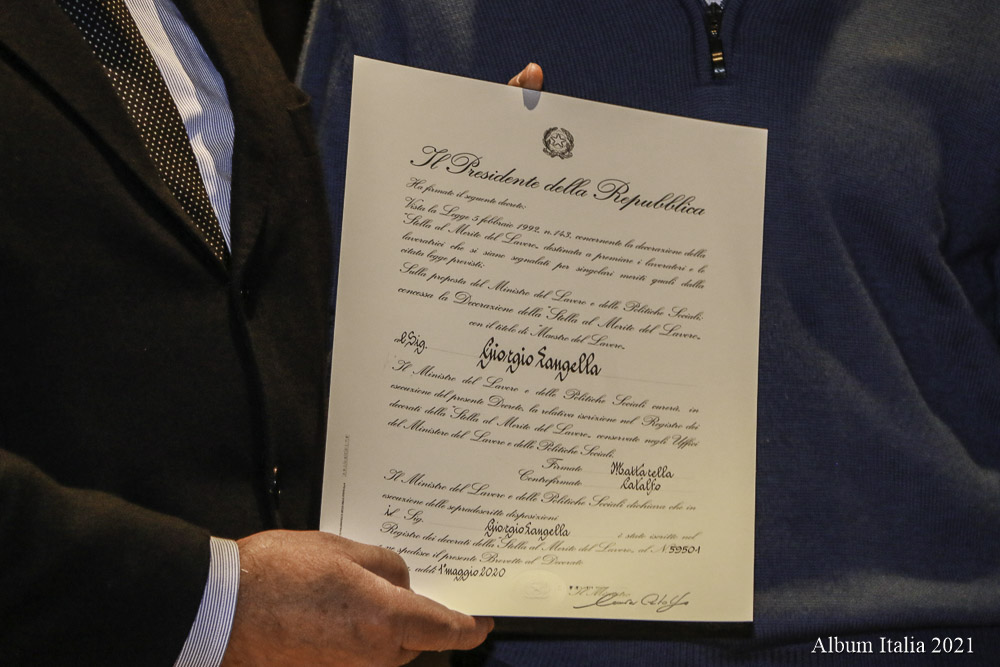 Il Presidente della Repubblica
Ha firmato il seguente decreto:
Vista la Legge 5 febbraio 1992, n. 143, concernente la decorazione della
"Stella al Merito del Lavoro", destinata a premiare i lavoratori e le
lavoratrici che si siano segnalati per singolari meriti quali dalla
citata legge previsti;
Sulla proposta del Ministro del Lavoro e delle Politiche Sociali;
concessa la Decorazione della "Stella al Merito del Lavoro"
con il titolo di "Maestro del Lavoro"
al Sig. Giorgio Langella
Il Ministro del Lavoro e delle Politiche Sociali curerà, in
esecuzione del presente Decreto, la relativa iscrizione nel Registro dei
decorati della "Stella al Merito del Lavoro", conservato negli Uffici
del Ministero del Lavoro e delle Politiche Sociali.
Firmato Mattarella
Controfirmato Catalfo
Il Ministro del Lavoro e delle Politiche Sociali dichiara che in
esecuzione delle sopradescritte disposizioni
il Sig. Giorgio Langella è stato iscritto nel
Registro dei decorati della "Stella al Merito del Lavoro", al N. 59501
ne spedisce il presente Brevetto al Decorato
addì 1° maggio 2020
Il
Catalfo
Album Italia 2021